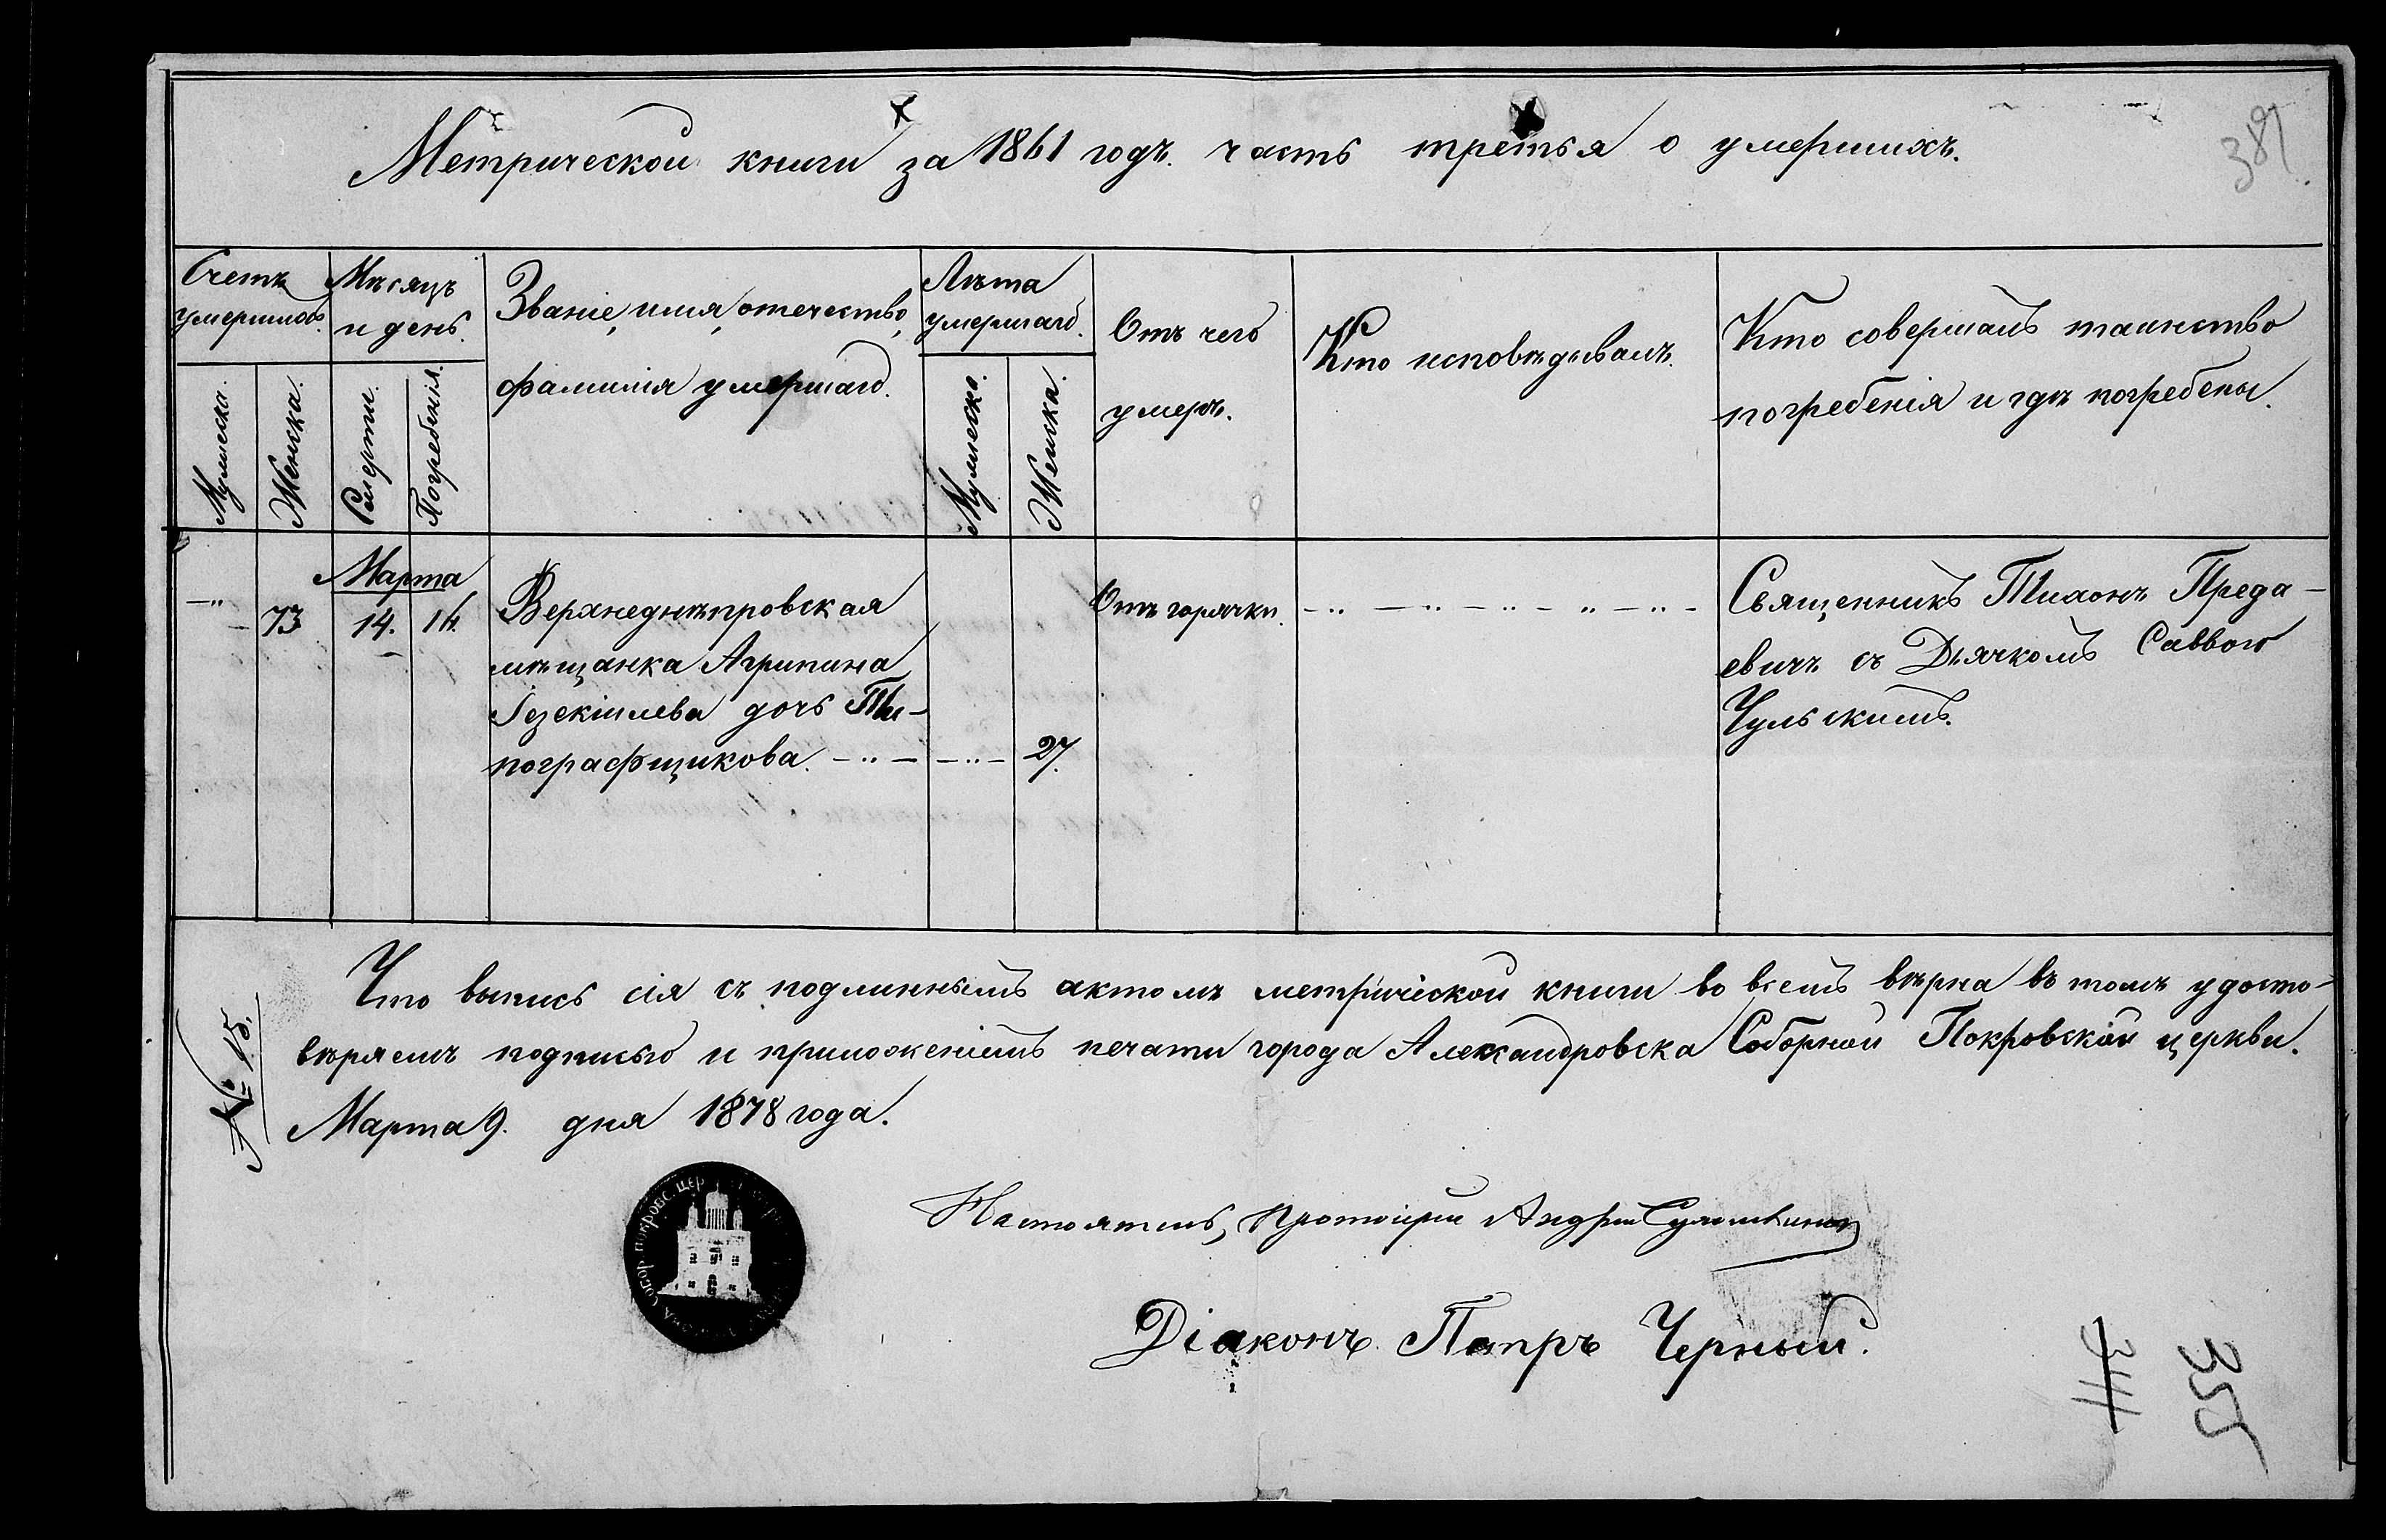 Метрической книги за 1861 годъ. часть третья о умершихъ.
389.
Счетъ
умершихъ.
Мужеска.
Женска.
Мѣсяцъ
и день.
Смерти.
Погребенія.
Званіе, имя, отечество,
фамилія умершаго.
Лѣта
умершаго.
Мужеска.
Женска.
Отъ чего
умеръ.
Кто исповѣдывалъ.
Кто совершалъ таинство
погребенія и гдѣ погребены.
73
Марта
14. 16.
Верхнеднѣпровская
мѣщанка Агрипина
Іезекіилева дочь Ти-
пографщикова.
27.
Отъ горячки.
Священникъ Тихонъ Преда-
евичъ съ Дьячкомъ Саввою
Чульскимъ.
Что выпись сія съ подлиннымъ актомъ метрической книги во всемъ вѣрна въ томъ удосто-
вѣряемъ подписью и приложеніемъ печати города Александровска Соборной Покровской церкви.
Марта 9. дня 1878 года.
№ 15.
собор. покровс. цер
Настоятель, Протоіерей Андрей
Діаконъ Петръ Черный.
341
355